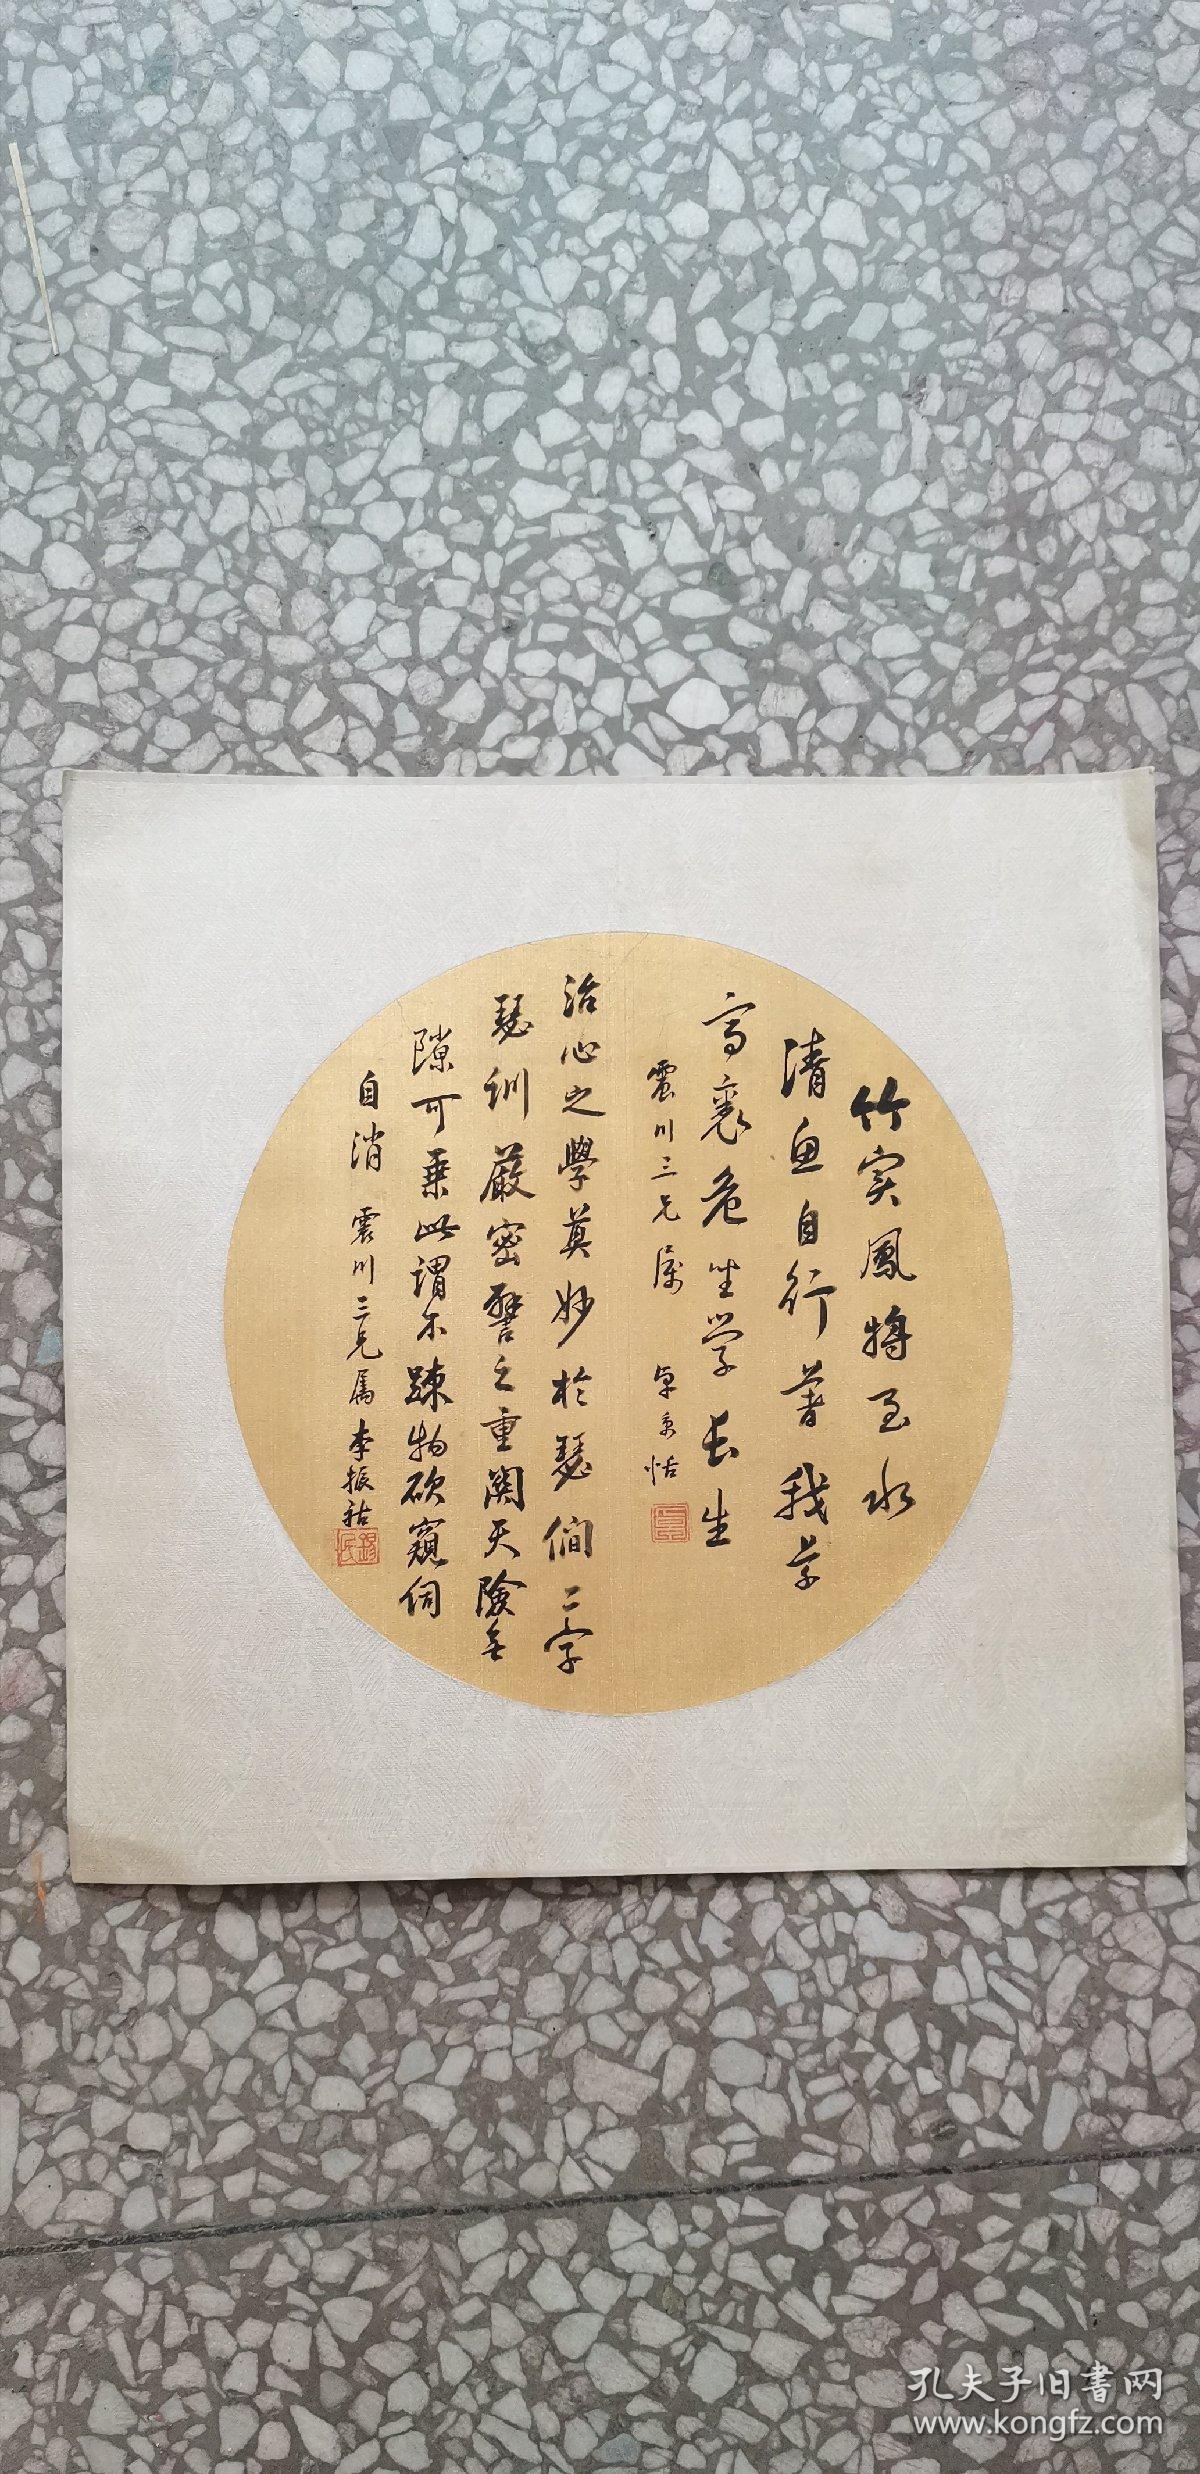 竹实鳳將至水
清魚自行著我草
亭裏危坐学长生
震川三兄属 卓景恬
治心之學莫妙於瑟僩二字
瑟訓嚴密譬之重關天險無
隙可乗此謂不踈物欲窺伺
自消 震川三兄属李振祜
孔夫子旧書网
www.kongfz.com